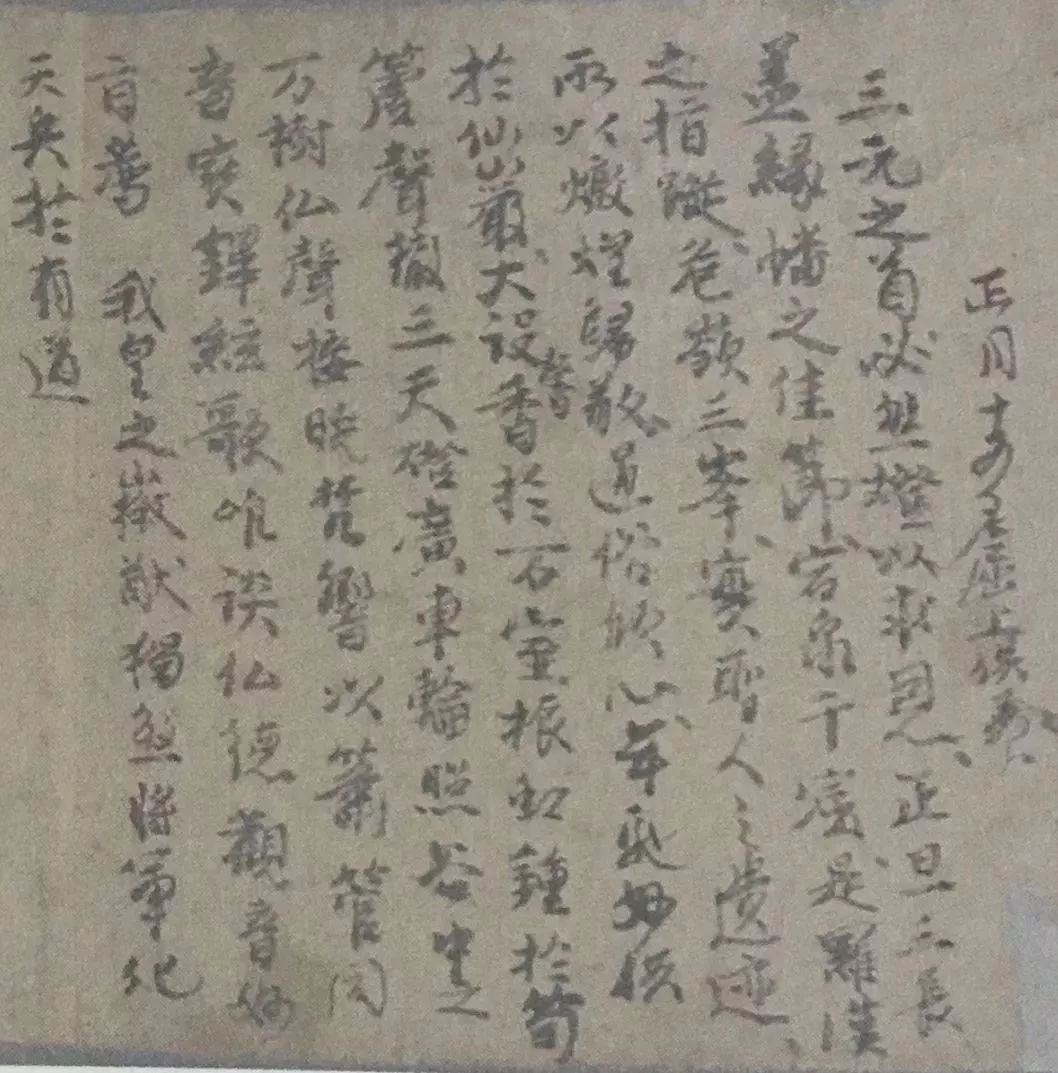 正月十五夜
三元之首必燃燈以求恩正旦三長
蓋緣幡之佳節宕泉千窟是羅漢
之指蹤危嶺三峯實聖人之遺迹
所以燉煌歸敬道俗傾心年馳妙供
於仙巖大設馨香於石室振虹鐘於笋
簴聲撤三天燈廣車輪照谷中之
万樹仏聲接曉梵響以簫管同
音寶鐸絃歌唯談仏德觀音妙
音薦 我皇之徽猷獨煞將軍化
天矣於有道